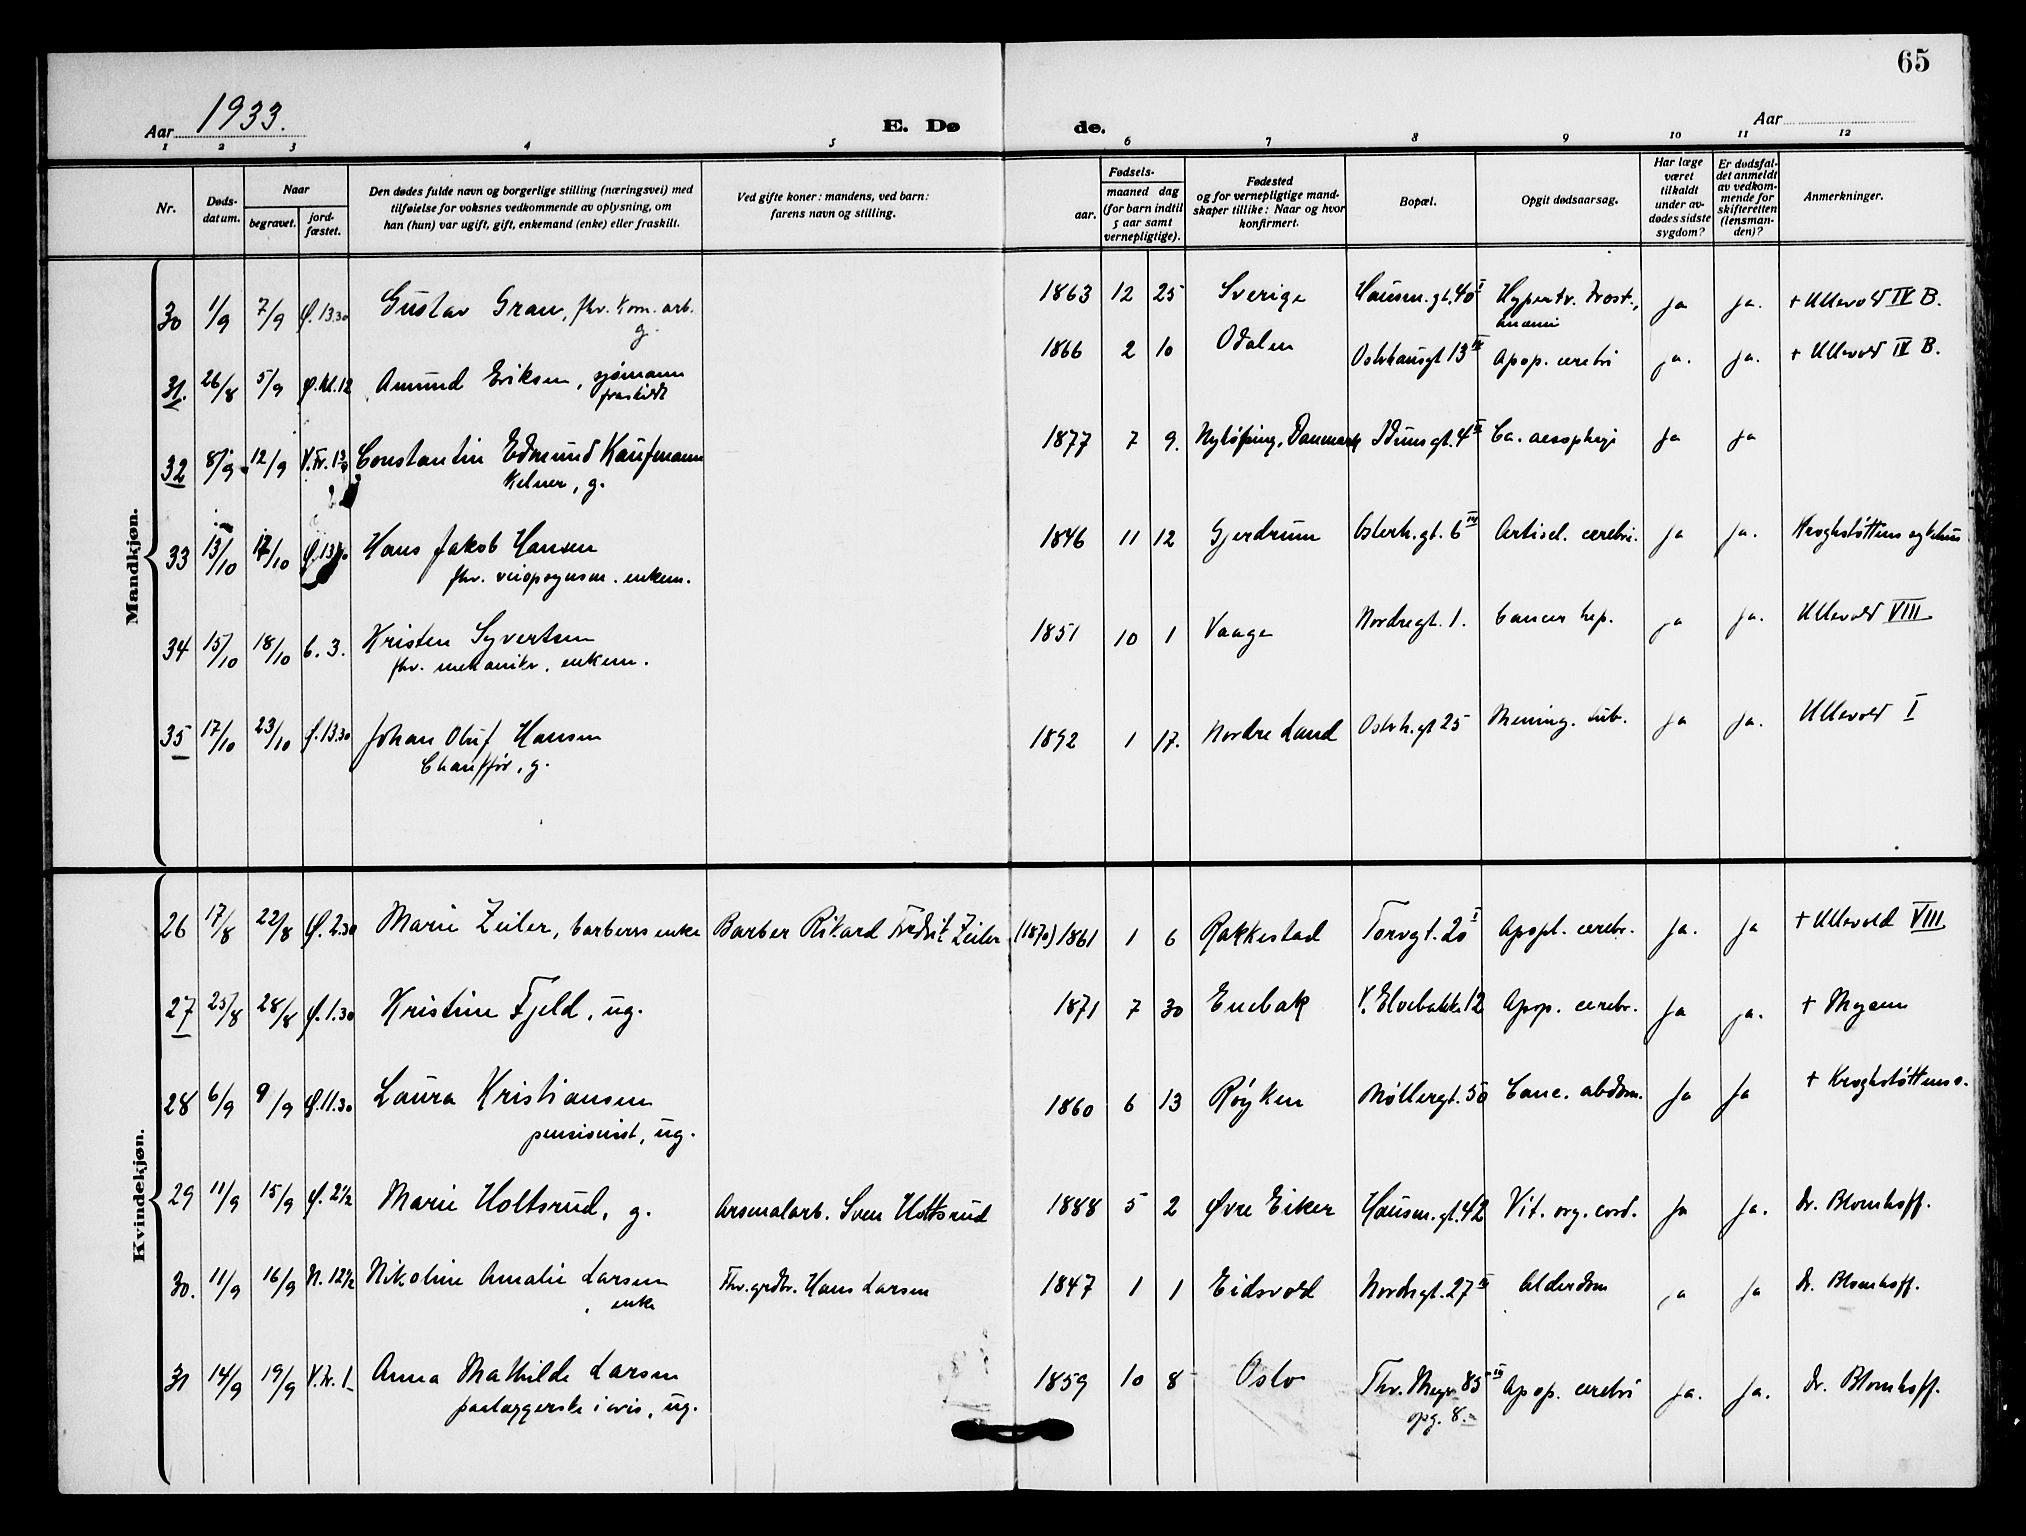 65
Aar 1933.
E. Dø
de.
Aar
1 2 3 4 5 6 7 8 9 10 11 12
Nr.
Døds-
datum.
Naar
begravet.
jord-
fæstet.
Den dødes fulde navn og borgerlige stilling (næringsvei) med
tilføielse for voksnes vedkommende av oplysning, om
han (hun) var ugift, gift, enkemand (enke) eller fraskilt.
Ved gifte koner: mandens, ved barn:
farens navn og stilling.
Fødsels-
aar.
maaned dag
(for barn indtil
5 aar samt
vernepligtige).
Fødested
og for vernepligtige mand-
skaper tillike: Naar og hvor
konfirmert.
Bopæl.
Opgit dødsaarsag.
Har læge
været
tilkaldt
under av-
dødes sidste
sygdom?
Er dødsfal-
det anmeldt
av vedkom-
mende for
skifteretten
(lensman-
den)?
Anmerkninger.
Mandkjøn.
30 1/9 7/9 Ø. 13.30 Gustav Gran, fhv. kom. arb. 1863 12 25 Sverige Hausm. gt. 40 I Hypertr. prost., ja ja. + Ullevold IX B.
g. anæmi
31. 26/8 5/9 Ø. kl. 12 Amund Eriksen, sjømann 1866 2 10 Odalen Osterhausgt 13 Apop. cerebri ja. ja. + Ullevold IX B.
fraskildt
32 8/9 12/9 V. Fr. Constantin Edmund Kaufmann 1877 7 9. Nykøbing, Danmark Idunsgt. 4 Ca. aesophagi ja ja
Kelner, g.
33 13/10 17/10 Ø. Hans Jakob Hansen 1846 11 12 Gjerdrum Osterh. gt. 6 III Artiscl. cerebri. ja ja. Kroghstøttens sykehus
fhv. veiopsynsm. enkem.
34 15/10 18/10 6. 3. Kristen Syvertsen 1851 10 1 Vaage Nordregt. 1. Cancer hep. ja ja. Ullevold VIII
fhv. mekaniker, enkem.
35 17/10 23/10 Ø. 13.30 Johan Oluf Hansen 1892 1 17. Nordre Land Osterh. gt 25 Mening. tub. ja ja. Ullevold I
Chauffør, g.
Kvindekjøn.
26 17/8 22/8 Ø. 2.30 Marie Zeiler, barbers enke Barber Rikard Fredrik Zeiler (1870) 1861 1 6 Rakkestad Torvgt. 20 I Apopl. cerebr. ja. ja + Ullevold VIII
27 25/8 28/8 Ø. 1.30 Kristine Fjeld, ug. 1871 7 30 Enebak V. Elvebakke 12 Apop. cerebr. ja ja. + Mogens
28 6/9 9/9 Ø. 11.30 Laura Kristiansen 1860 6 13 Røyken Møllergt. 50 Canc. abdom. ja ja + Kroghstøttens s.
pensionist, ug.
29 11/9 15/9 Ø. 2 1/2 Marie Holtsrud, g. Arsenalarb. Sven Holtsrud 1888 5 2 Øvre Eiker Hausm. gt. 42 Vit. org. cord. ja ja. Dr. Blomhoff.
30. 11/9 16/9 N. 12 1/2 Nikoline Amalie Larsen Fhv. grdbr. Hans Larsen 1847 1 1 Eidsvold Nordregt. 27 Alderdom ja ja Dr. Blomhoff.
enke
31 14/9 19/9 V. kr. 1 Anna Mathilde Larsen 1859 10 8 Oslo Thv. Meyer 85 III Apop. cerebri ja. ja. Dr. Blomhoff.
paalæggerske i avis, ug. opg. 8.